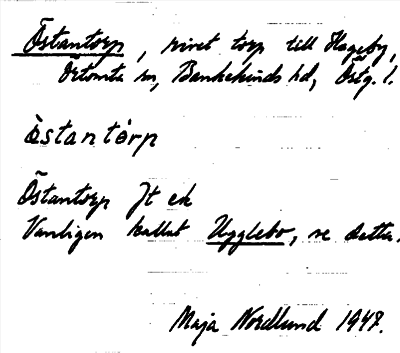 Östantorp, rivet torp till Hageby,
Örtomta sn, Bankekinds hd, Östg. l.
östantórp
Östantorp Jt ek
Vanligen kallat Ugglebo, se detta.
Maja Nordlund 1947.